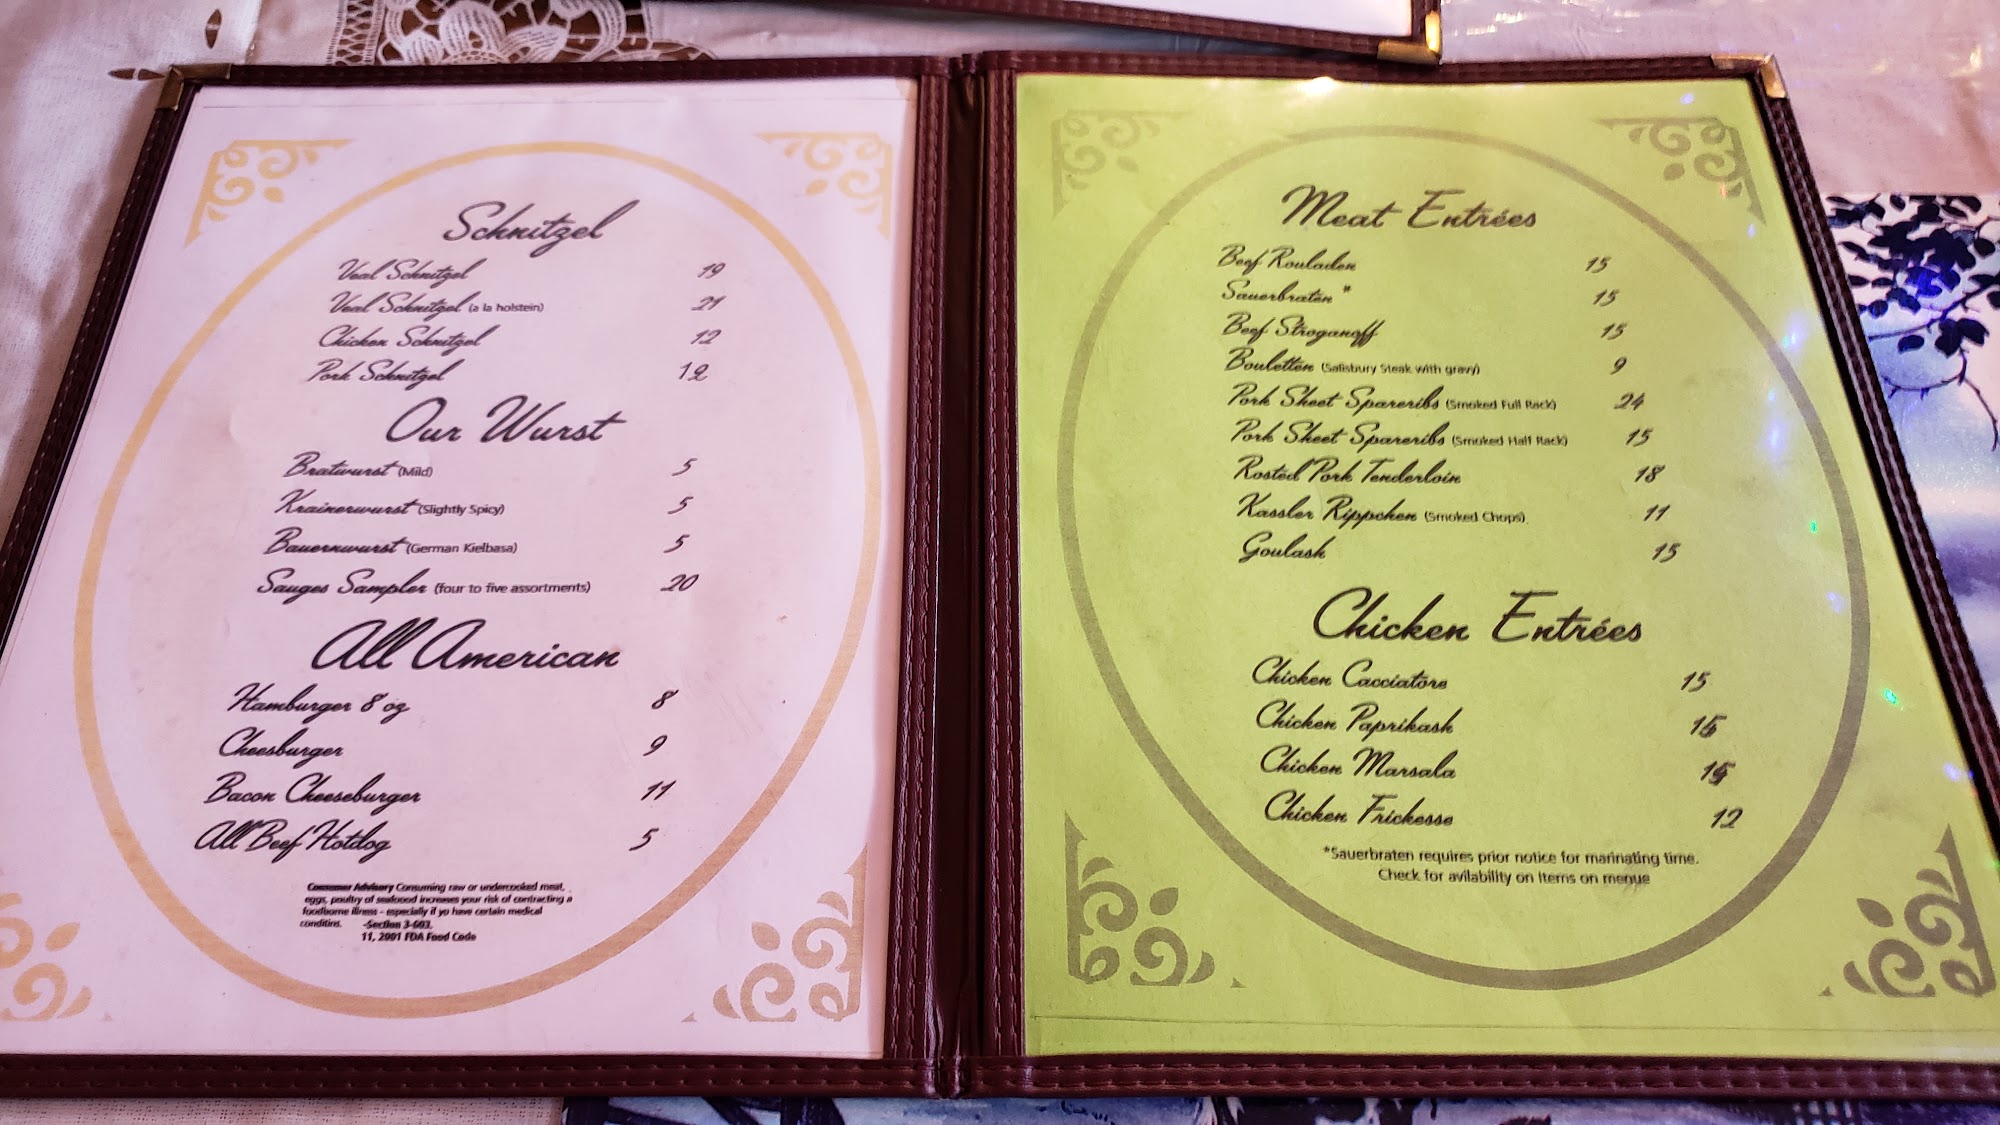 Schnitzel
Veal Schnitzel 19
Veal Schnitzel (a la holstein) 21
Chicken Schnitzel 12
Pork Schnitzel 12
Our Wurst
Bratwurst (Mild) 5
Krainerwurst (Slightly Spicy) 5
Bauernwurst (German Kielbasa) 5
Sauges Sampler (four to five assortments) 20
All American
Hamburger 8 oz 8
Cheesburger 9
Bacon Cheeseburger 11
All Beef Hotdog 5
Consumer Advisory Consuming raw or undercooked meat,
eggs, poultry of seafood increases your risk of contracting a
foodborne illness - especially if yo have certain medical
conditins. -Section 3-603.
11, 2001 FDA Food Code
Meat Entrées
Beef Rouladen 15
Sauerbraten * 15
Beef Stroganoff 15
Bouletten (Salisbury Steak with gravy) 9
Pork Sheet Spareribs (Smoked Full Rack) 24
Pork Sheet Spareribs (Smoked Half Rack) 15
Rosted Pork Tenderloin 18
Kassler Rippchen (Smoked Chops) 11
Goulash 15
Chicken Entrées
Chicken Cacciatore 15
Chicken Paprikash
Chicken Marsala
Chicken Frickesse 12
*Sauerbraten requires prior notice for marinating time.
Check for avilability on Items on menue